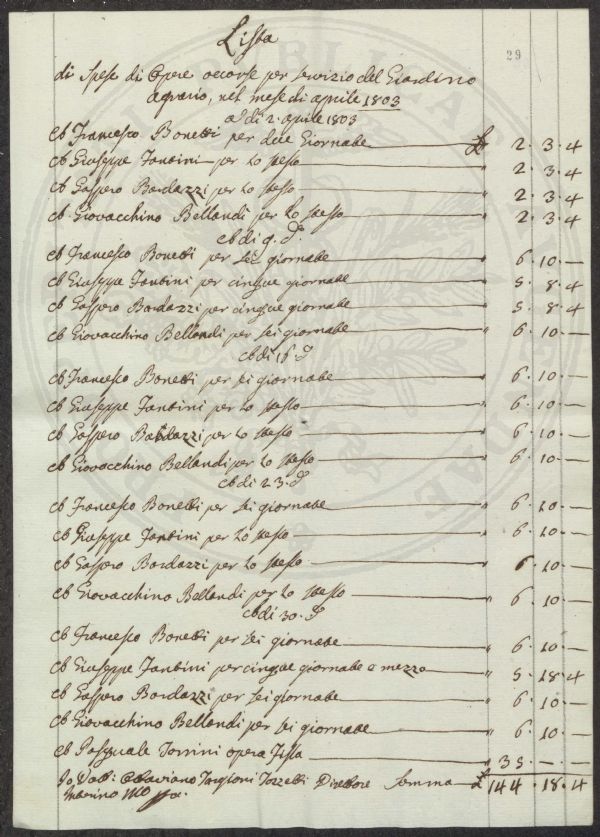 29
Lista
di Spese di Opere occorse per servizio del Giardino
agrario, nel mese di aprile 1803
a dì 2. aprile 1803
A Francesco Bonetti per due Giornate £ 2. 3. 4
A Giuseppe Fantini per lo stesso " 2. 3. 4
A Gaspero Bardazzi per lo stesso " 2. 3. 4
A Giovacchino Bellandi per lo stesso " 2. 3. 4
A dì 9. do
A Francesco Bonetti per sei giornate " 6. 10. —
A Giuseppe Fantini per cinque giornate " 5. 8. 4
A Gaspero Bardazzi per cinque giornate " 5. 8. 4
A Giovacchino Bellandi per sei giornate " 6. 10. —
A dì 16 do
A Francesco Bonetti per sei giornate " 6. 10. —
A Giuseppe Fantini per lo stesso " 6. 10. —
A Gaspero Bardazzi per lo stesso " 6. 10. —
A Giovacchino Bellandi per lo stesso " 6. 10. —
A dì 23. do
A Francesco Bonetti per sei giornate " 6. 10. —
A Giuseppe Fantini per lo stesso " 6. 10. —
A Gaspero Bardazzi per lo stesso " 6. 10. —
A Giovacchino Bellandi per lo stesso " 6. 10. —
A dì 30. do
A Francesco Bonetti per sei giornate " 6. 10. —
A Giuseppe Fantini per cinque giornate e mezzo " 5. 18. 4
A Gaspero Bardazzi per sei giornate " 6. 10. —
A Giovacchino Bellandi per sei giornate " 6. 10. —
A Pasquale Torrini opera fissa " 35. — —
Io Dott: Ottaviano Targioni Tozzetti Direttore Somma £ 144. 18. 4